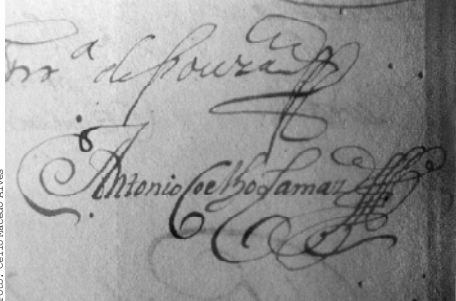 frr.ª de Souza
Antonio Coelho Gamaz
Foto: Celio Macedo Alves